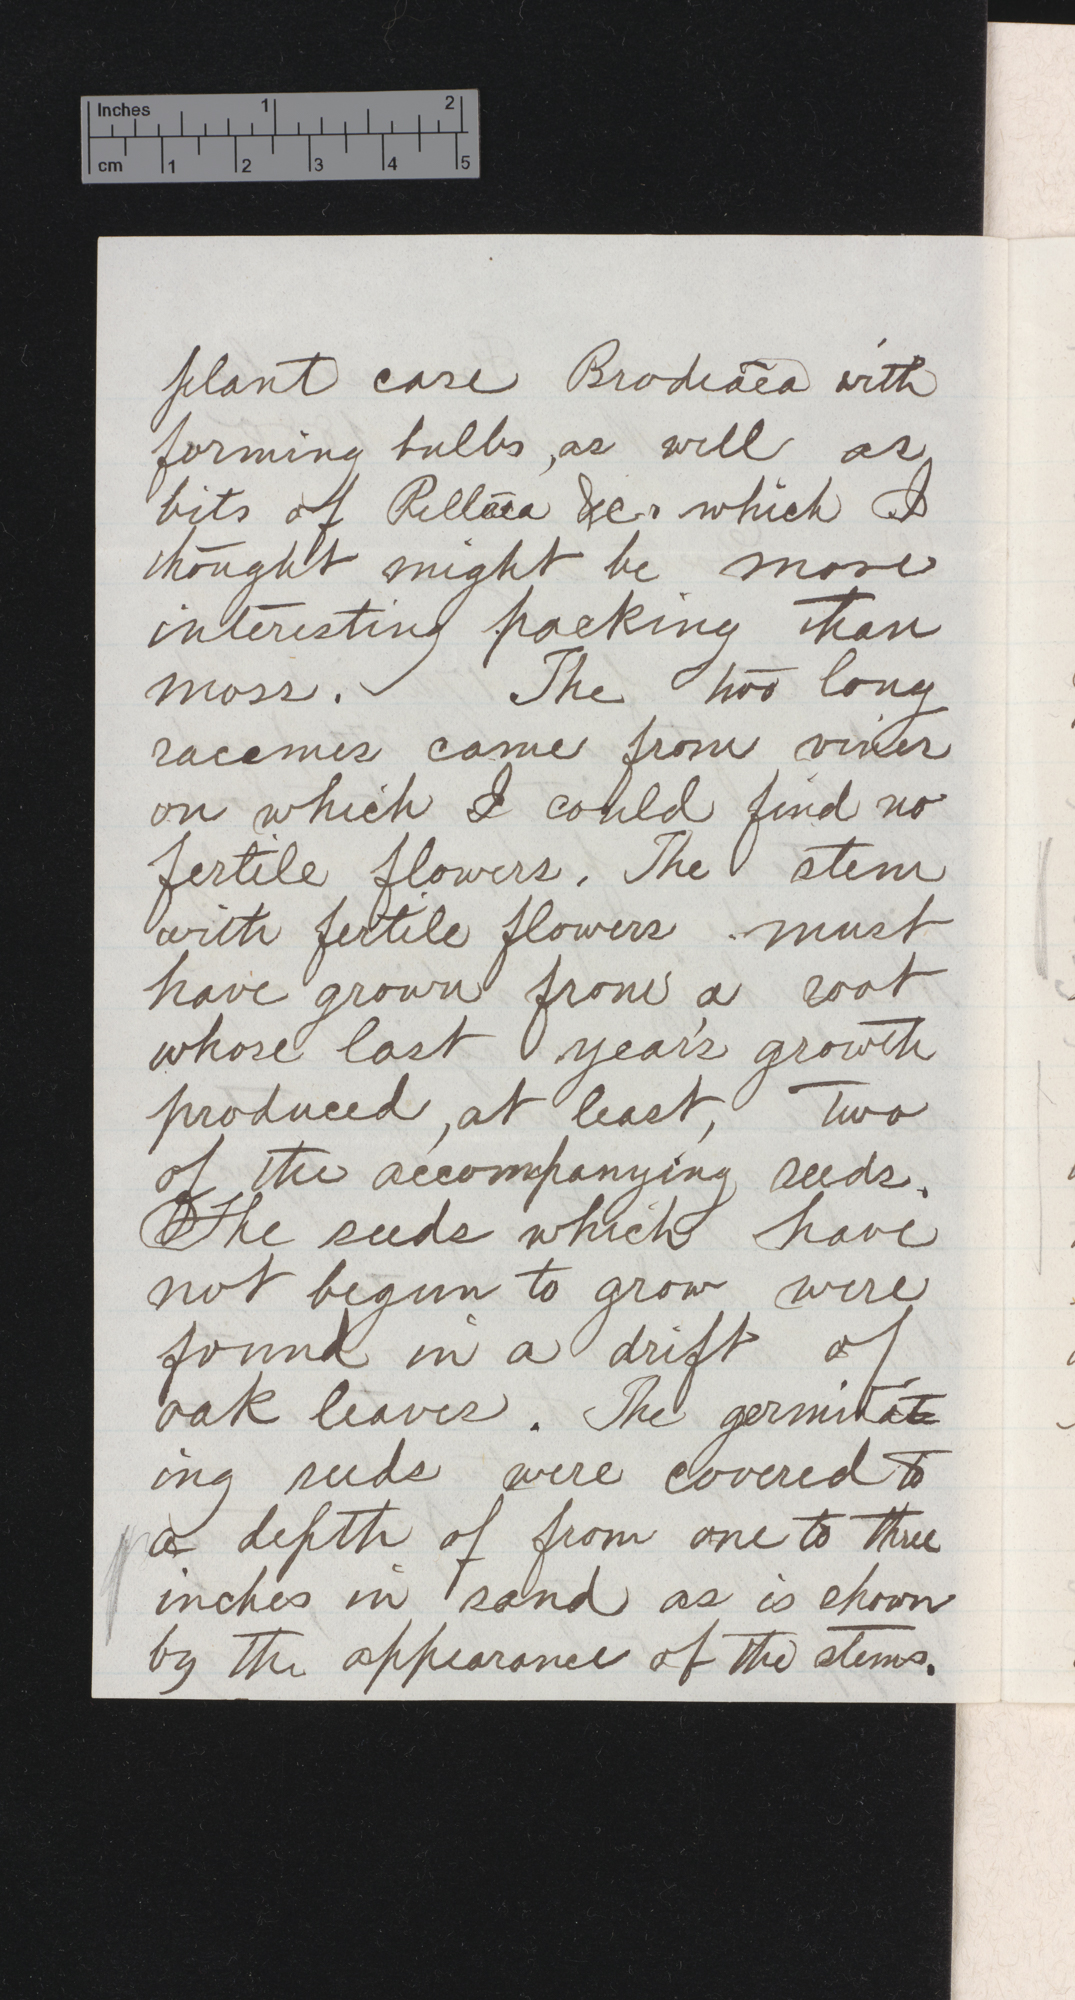 Inches 1 2
cm 1 2 3 4 5
plant case Brodeaea with
forming bulbs, as well as
bits of Pellaea &c. which I
thought might be more
interesting packing than
moss. The two long
racemes came from vines
on which I could find no
fertile flowers. The stem
with fertile flowers must
have grown from a root
whose last year's growth
produced, at least, two
of the accompanying seeds.
The seeds which have
not begun to grow were
found in a drift of
oak leaves. The germinat
ing seeds were covered to
a depth of from one to three
inches in sand as is shown
by the appearance of the stems.